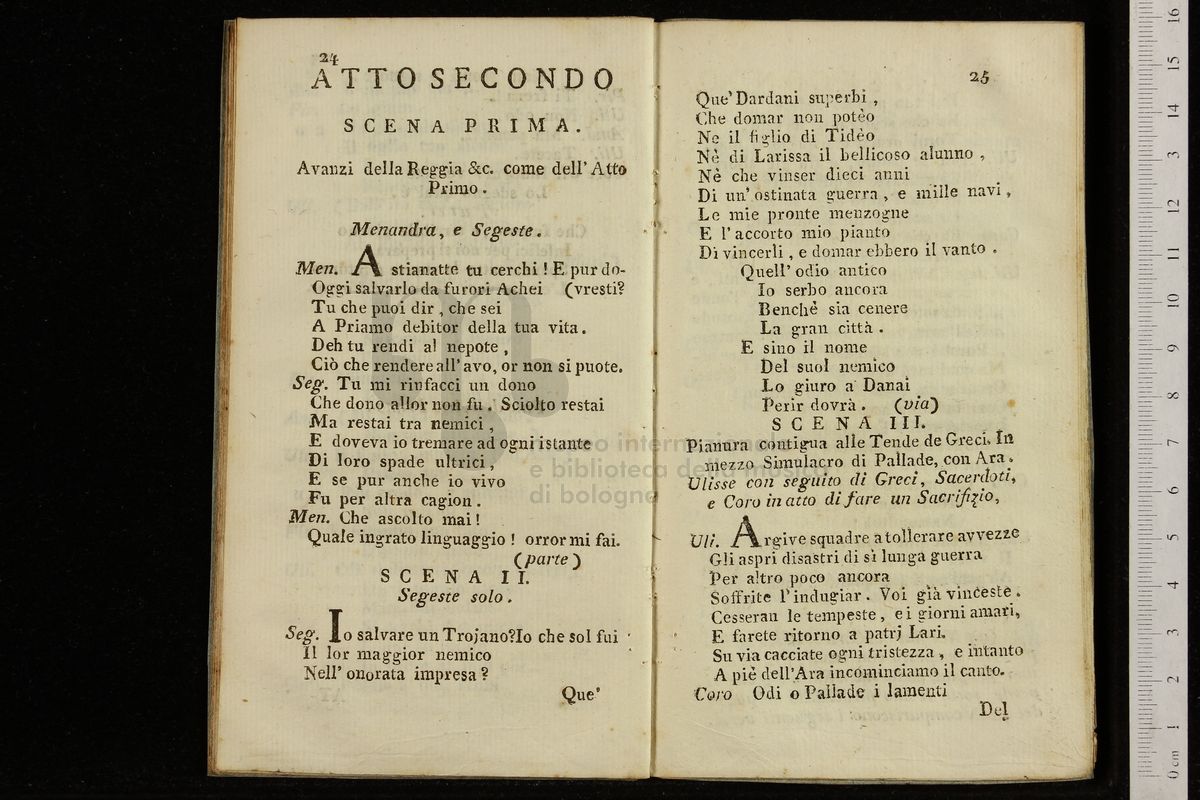 24
ATTO SECONDO
SCENA PRIMA.
Avanzi della Reggia &c. come dell' Atto
Primo.
Menandra, e Segeste.
Men. Astianatte tu cerchi! E pur do-
Oggi salvarlo da furori Achei (vresti?
Tu che puoi dir, che sei
A Priamo debitor della tua vita.
Deh tu rendi al nepote,
Ciò che rendere all' avo, or non si puote.
Seg. Tu mi rinfacci un dono
Che dono allor non fu. Sciolto restai
Ma restai tra nemici,
E doveva io tremare ad ogni istante
Di loro spade ultrici,
E se pur anche io vivo
Fu per altra cagion.
Men. Che ascolto mai!
Quale ingrato linguaggio! orror mi fai.
(parte)
SCENA II.
Segeste solo.
Seg. Io salvare un Trojano? Io che sol fui
Il lor maggior nemico
Nell' onorata impresa?
Que'
25
Que' Dardani superbi,
Che domar non potèo
Ne il figlio di Tidèo
Nè di Larissa il bellicoso alunno,
Nè che vinser dieci anni
Di un' ostinata guerra, e mille navi,
Le mie pronte menzogne
E l' accorto mio pianto
Di vincerli, e domar ebbero il vanto.
Quell' odio antico
Io serbo ancora
Benchè sia cenere
La gran città.
E sino il nome
Del suol nemico
Lo giuro a Danai
Perir dovrà. (via)
SCENA III.
Pianura contigua alle Tende de Greci. In
mezzo Simulacro di Pallade, con Ara.
Ulisse con seguito di Greci, Sacerdoti,
e Coro in atto di fare un Sacrifizio,
Uli. Argive squadre a tollerare avvezze
Gli aspri disastri di sì lunga guerra
Per altro poco ancora
Soffrite l'indugiar. Voi già vinceste.
Cesseran le tempeste, e i giorni amari,
E farete ritorno a patrj Lari.
Su via cacciate ogni tristezza, e intanto
A piè dell'Ara incominciamo il canto.
Coro Odi o Pallade i lamenti
Del
museo internazionale
e biblioteca della musica
di bologna
0 cm 1 2 3 4 5 6 7 8 9 10 11 12 13 14 15 16